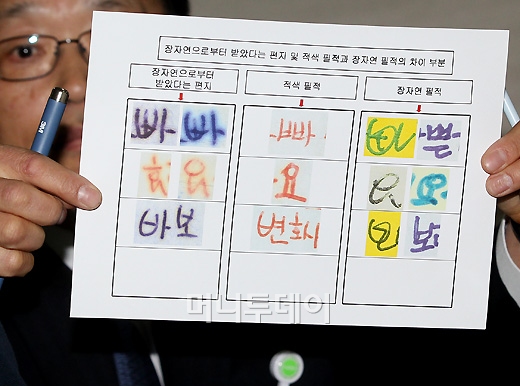 장자연으로부터 받았다는 편지 및 적색 필적과 장자연 필적의 차이 부분
장자연으로부터
받았다는 편지
적색 필적
장자연 필적
빠 빠
빠
쁜
요
요
바보
변화시
보
머니투데이